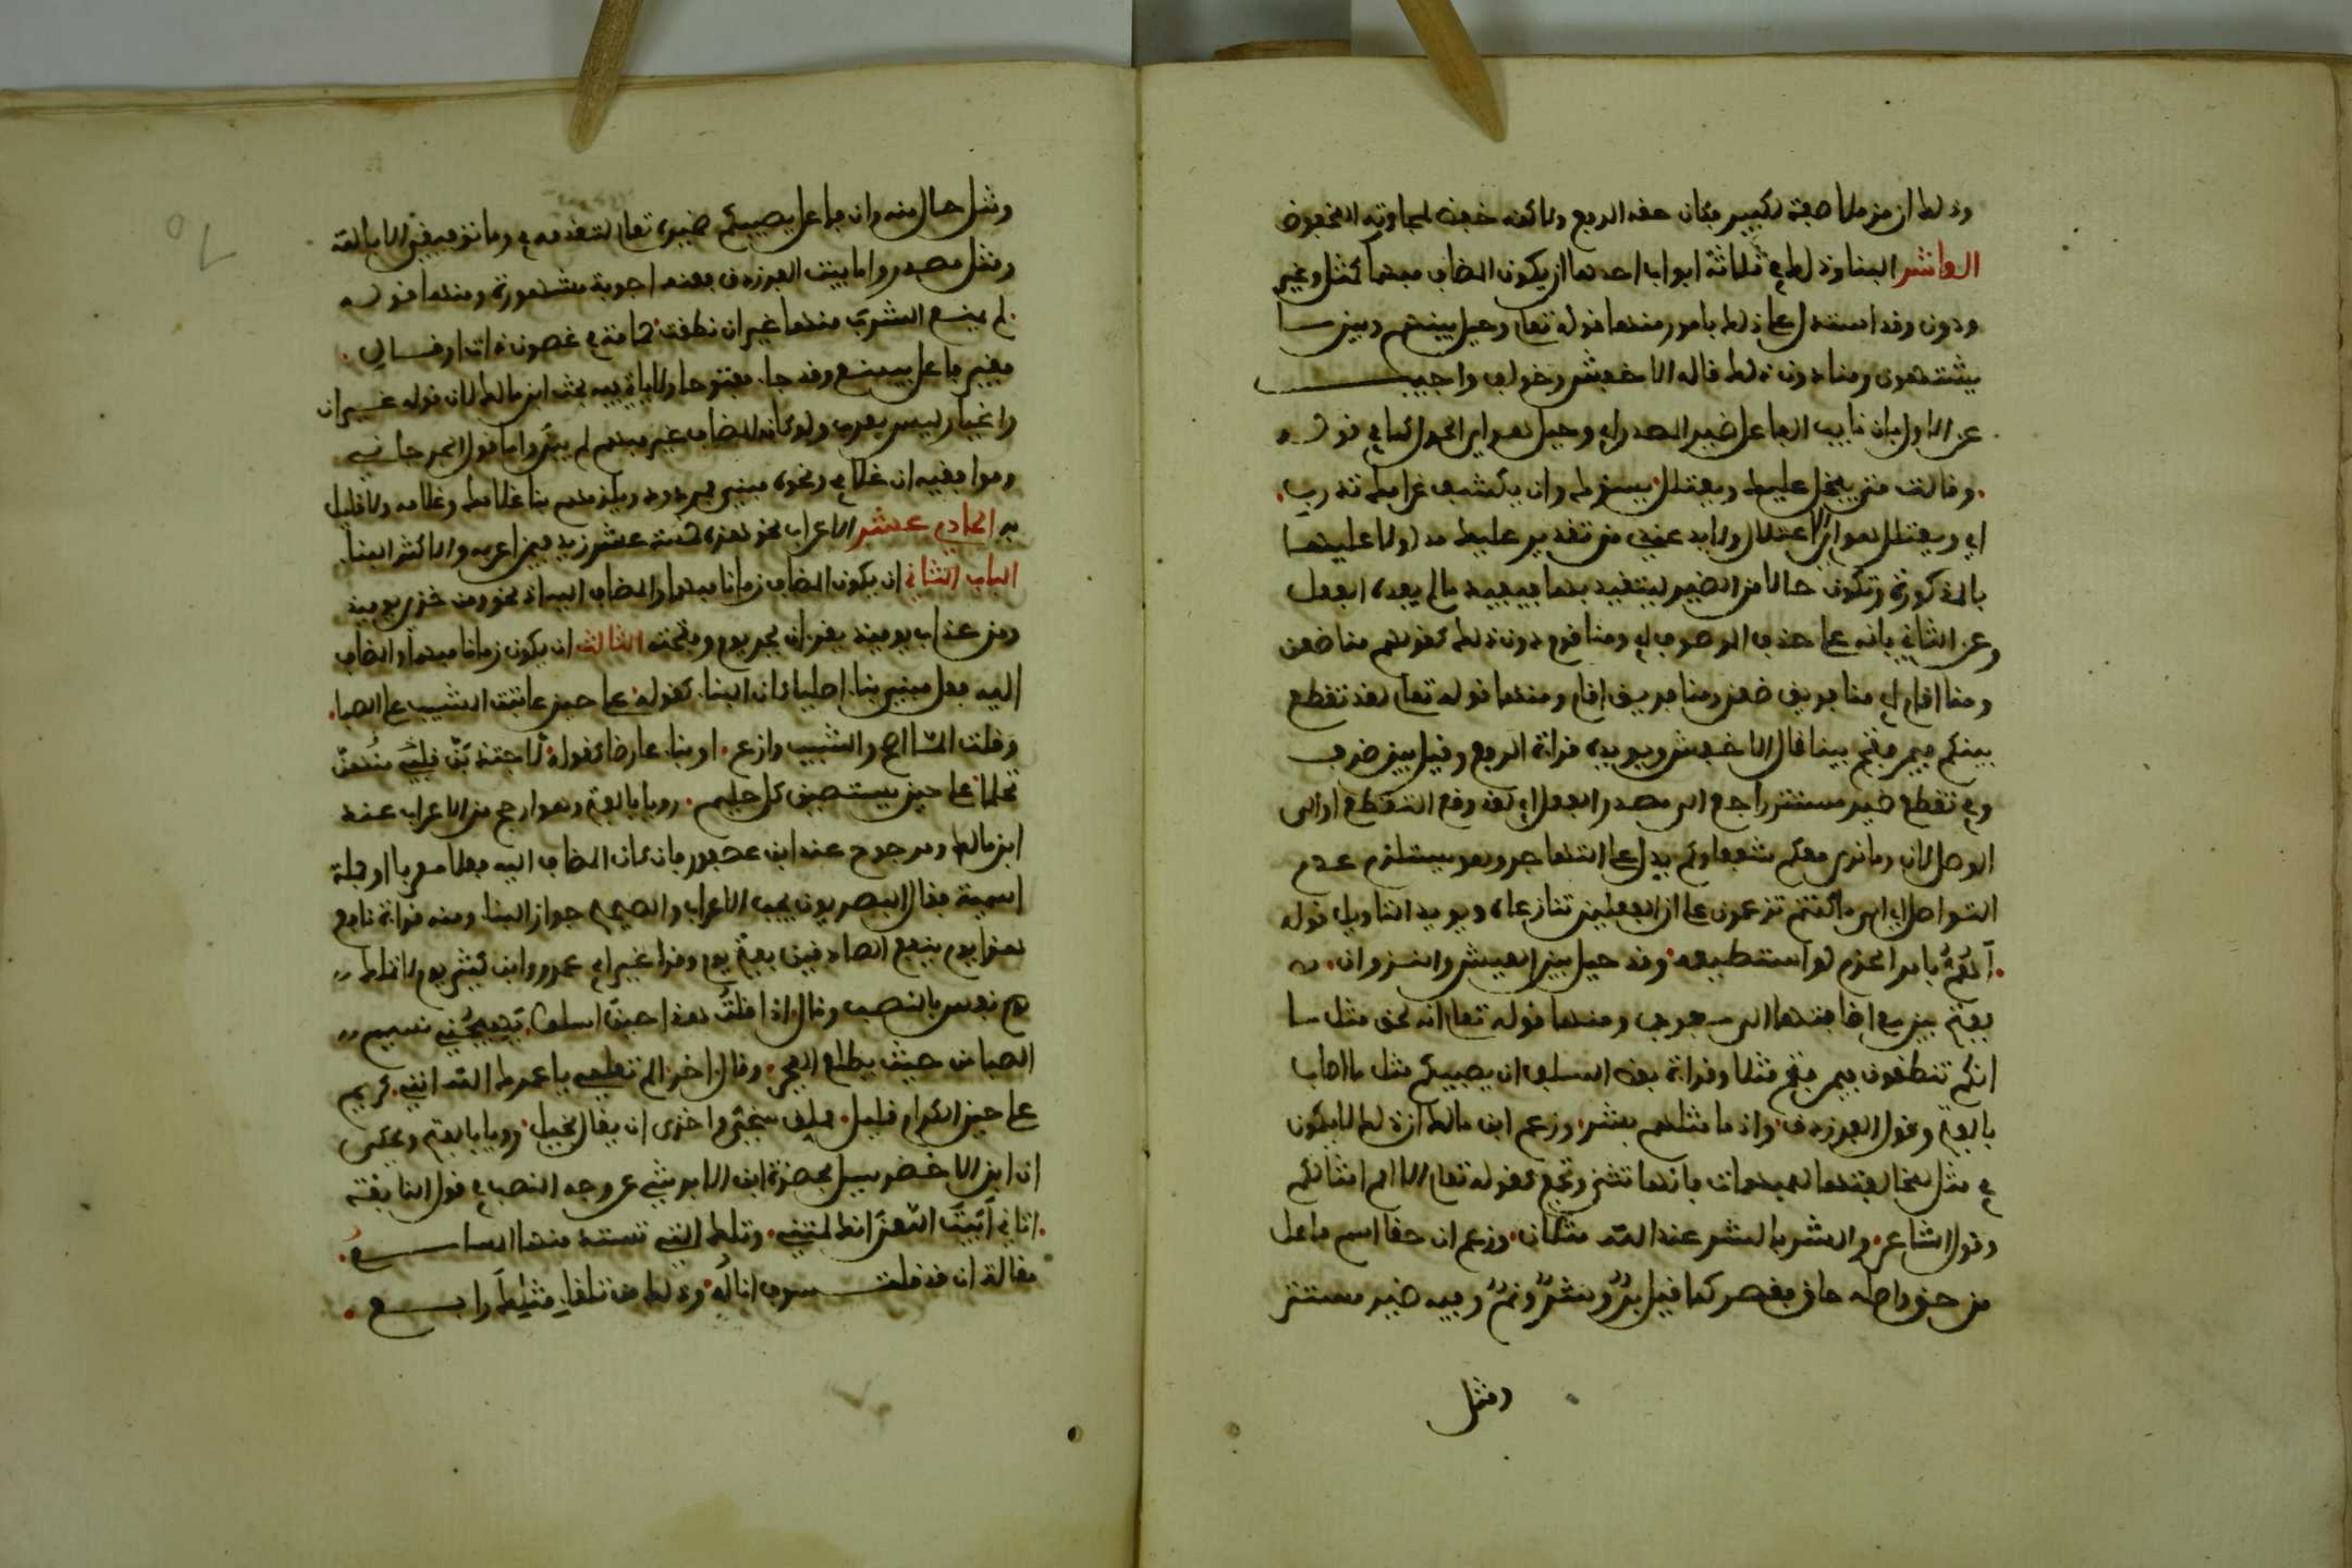 وذلك ان من ملا صفة لكبير فكان حقه الرفع ولاكنه خفض لمجاورته المخفوض
العاشر البنا وذلك في ثلاثة ابواب احدها ان يكون المضاف مبهما كمثل وغير
ودون وقد استدل على ذلك بامور منها قوله تعلى وحيل بينهم وبين ما
يشتهون ومنا دون ذلك قاله الاخفش وخولف واجيب
عن الاول بان نايب الفاعل ضمير المصدر اي وحيل هو اي الحول كما في قوله
وقالت متى يبخل عليك ويعتلل يسؤك وان يكشف غرامك تدرب
اي ويعتلل هو اي الاعتلال ولا بد عندي من تقدير عليك مدلولا عليها
بالمذكورة وتكون حالا من الضمير ليتقيد بها فيفيد ما لم يفده الفعل
وعن الثاني بانه على حذف الموصوف اي ومنا قوم دون ذلك كقولهم منا ظعن
ومنا اقام اي منا فريق ظعن ومنا فريق اقام ومنها قوله تعلى لقد تقطع
بينكم فيمن فتح بينا قال الاخفش ويويده قراة الرفع وقيل بين ظرف
وفي تقطع ضمير مستتر راجع الى مصدر الفعل اي لقد وقع التقطع او الى
الوصل لان وما نرى معكم شفعاوكم يدل على التهاجر وهو يستلزم عدم
التواصل او الى ما كنتم تزعمون على ان الفعلين تنازعاه ويويد التاويل قوله
اهم بامر الحزم لو استطيعه وقد حيل بين العير والنزوان
بفتح بين مع اضافتها الى معرب ومنها قوله تعلى انه لحق مثل ما
انكم تنطقون فيمن فتح مثلا وقراة بعض السلف ان يصيبكم مثل ما اصاب
بالفتح وقول الفرزدق واذ ما مثلهم بشر وزعم ابن مالك ان ذلك لا يكون
في مثل لمخالفتها للمبهمات فانها تثنى وتجمع كقوله تعلى الا امم امثالكم
وقول الشاعر والشر بالشر عند الله مثلان وزعم ان حقا اسم فاعل
من حق واصله حاق فقصر كما قيل بر وسر ونم وفيه ضمير مستتر
ومثل
ومثل حال منه وان فاعل يصيبكم ضميره تعلى لتقدمه في وما توفيقي الا بالله
ومثل مصدر واما بيت الفرزدق ففيه اجوبة مشهورة ومنها قوله
لم يمنع الشرب منها غير ان نطقت حمامة في غصون ذات اوقال
فغير فاعل بيمنع وقد جا مفتوحا ولا ياتي فيه بحث ابن مالك لان قوله غير ان
واغيار ليس بعربي ولو كان المضاف غير مبهم لم يبن واما قول الجرجاني
وموافقيه ان غلامي ونحوه مبني فمردود ويلزمهم بنا غلامك وغلامه ولا قايل
به الحادي عشر الاعراب نحو هذه خمسة عشر زيد فيمن اعربه والاكثر البنا
الباب الثاني ان يكون المضاف زمانا مبهما والمضاف اليه اذ نحو ومن خزي يوميذ
ومن عذاب يوميذ يقران بجر يوم وفتحه الثالث ان يكون زمانا مبهما والمضاف
اليه فعل مبني بنا اصليا كان البنا كقوله على حين عاتبت المشيب على الصبا
وقلت الما اصح والشيب وازع او بنا عارضا كقوله لاجتذبن قلبي منهن
تحلما على حين يستصبين كل حليم رويا بالفتح وهو ارجح من الاعراب عند
ابن مالك ومرجوح عند ابن عصفور فان كان المضاف اليه فعلا معربا او جملة
اسمية فقال البصريون يجب الاعراب والصحيح جواز البنا ومنه قراة نافع
هذا يوم ينفع الصادقين بفتح يوم وقرا غير ابي عمرو وابن كثير يوم لا تملك
نفس بالنصب وقال اذا قلت هذا حين اسلو يهيجني نسيم
الصبا من حيث يطلع الفجر وقال اخر الم تعلمي يا عمرك الله انني كريم
على حين الكرام قليل واخزى ان يقال بخيل رويا بالفتح ويحكى
ان ابن الاخضر سيل بحضرة ابن الابرش عن وجه النصب في قول النابغة
اتاني ابيت اللعن انك لمتني وتلك التي تستد منها المسامع
مقالة ان قد قلت سوف اناله وذلك من تلقاء مثلك رايع